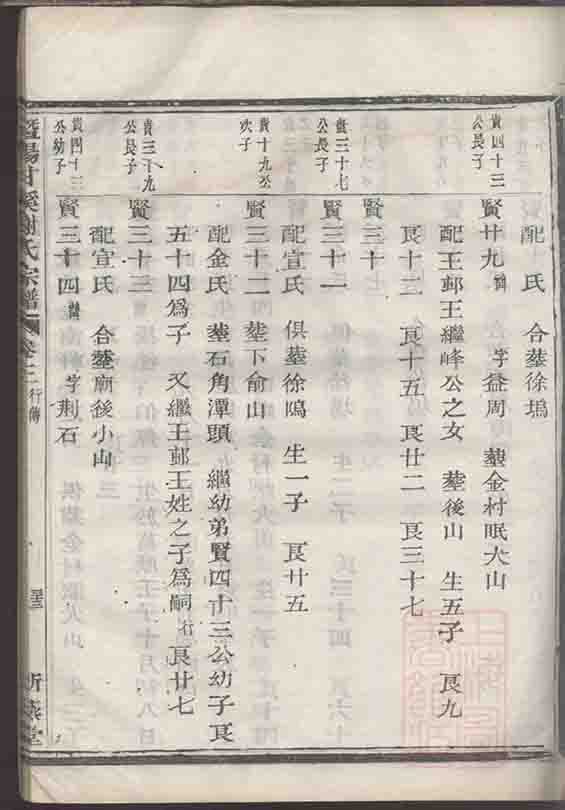 配　氏　合塟徐塢
貴四十三公長子
賢廿九　諱　字益周　塟金村眠犬山
配王邨王繼峰公之女　塟後山　生五子　艮九
艮十二　艮十五　艮廿二　艮三十七
賢三十
貴三十七公長子
賢三十一
配宣氏　俱塟徐塢　生一子　艮廿五
貴十九公次子
賢三十二　塟下俞山
配金氏　塟石角潭頭　繼幼弟賢四十三公幼子艮
五十四爲子　又繼王邨王姓之子爲嗣　艮廿七
貴三十九公長子
賢三十三
配宣氏　合塟廟後小山
貴四十三公幼子
賢三十四　諱　字荆石
暨陽甘溪謝氏宗譜　卷十二　行傳